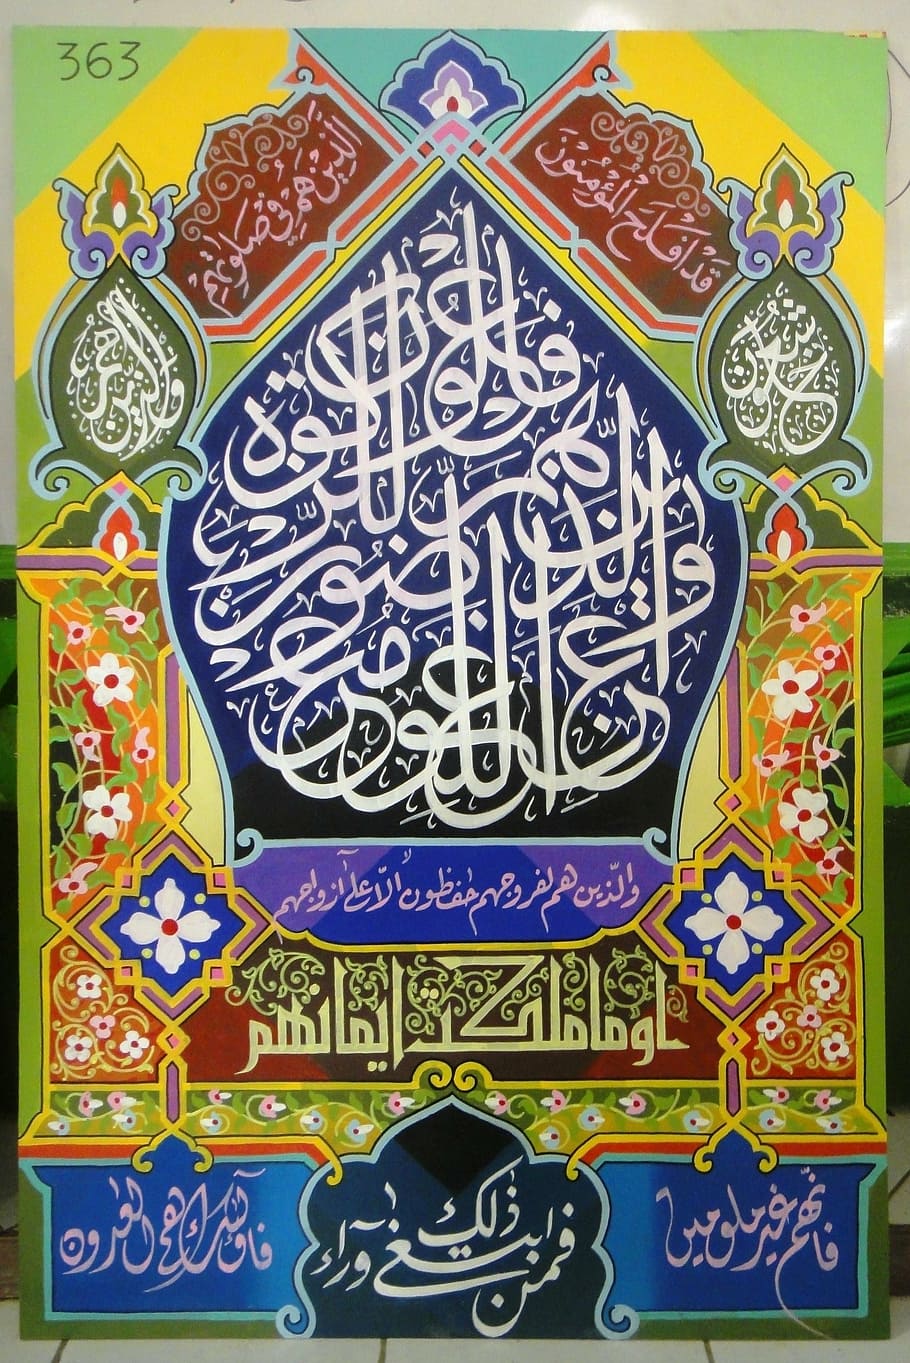 363
قد افلح المؤمنون
الذين هم في صلاتهم
خاشعون
والذين هم
عن اللغو معرضون
والذين هم للزكوة فاعلون
والذين هم لفروجهم حٰفظون الا على ازواجهم
او ما ملكت ايمانهم
فانهم غير ملومين
فمن ابتغى وراء ذلك
فاولئك هم العدون